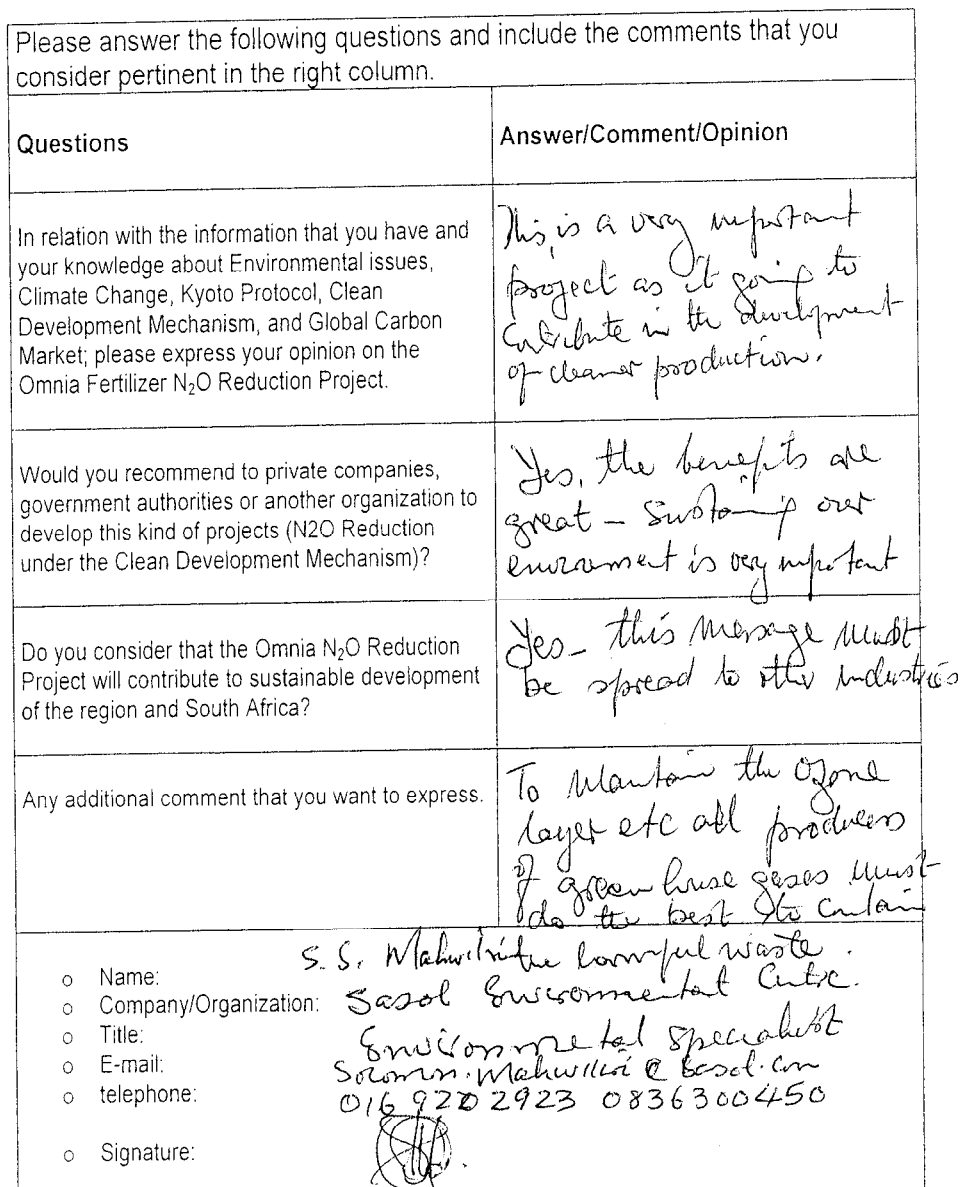 Please answer the following questions and include the comments that you
consider pertinent in the right column.
Questions
Answer/Comment/Opinion
In relation with the information that you have and
your knowledge about Environmental issues,
Climate Change, Kyoto Protocol, Clean
Development Mechanism, and Global Carbon
Market; please express your opinion on the
Omnia Fertilizer N₂O Reduction Project.
This is a very important
project as it going to
contribute in the development
of cleaner production.
Would you recommend to private companies,
government authorities or another organization to
develop this kind of projects (N2O Reduction
under the Clean Development Mechanism)?
Yes, the benefits are
great - Sustaining over
environment is very important
Do you consider that the Omnia N₂O Reduction
Project will contribute to sustainable development
of the region and South Africa?
Yes - this message must
be spread to other industries
Any additional comment that you want to express.
To Maintain the Ozone
layer etc all producers
of green house gases must
do the best to contain
the harmful waste.
o Name: S. S.
o Company/Organization: Sasol Environmental Centre.
o Title: Environmental Specialist
o E-mail:
o telephone: 016 920 2923 0836300450
o Signature: